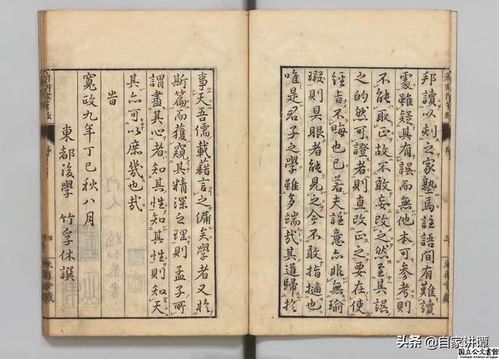 邦讀以刻之家塾焉註語間有難讀
處雖疑其有誤而無他本可參考則
不能取正故不敢妄改之然至其誤
之的然可證者則直改正之要在使
經旨不晦也已若夫註意亦非無瑜
瑕則具眼者能見之今不敢指擿也
唯是君子之學雖多端哉其道歸於
事天吾儒載籍言之備矣學者又於
斯篇而獲窺其精深之理則孟子所
謂盡其心者知其性知其性則知天
其亦可以庶幾也哉
旹
寬政九年丁巳秋八月
東都後學 竹孚休譔
頭条 @自家讲谭
国立公文書館
National Archives of Japan